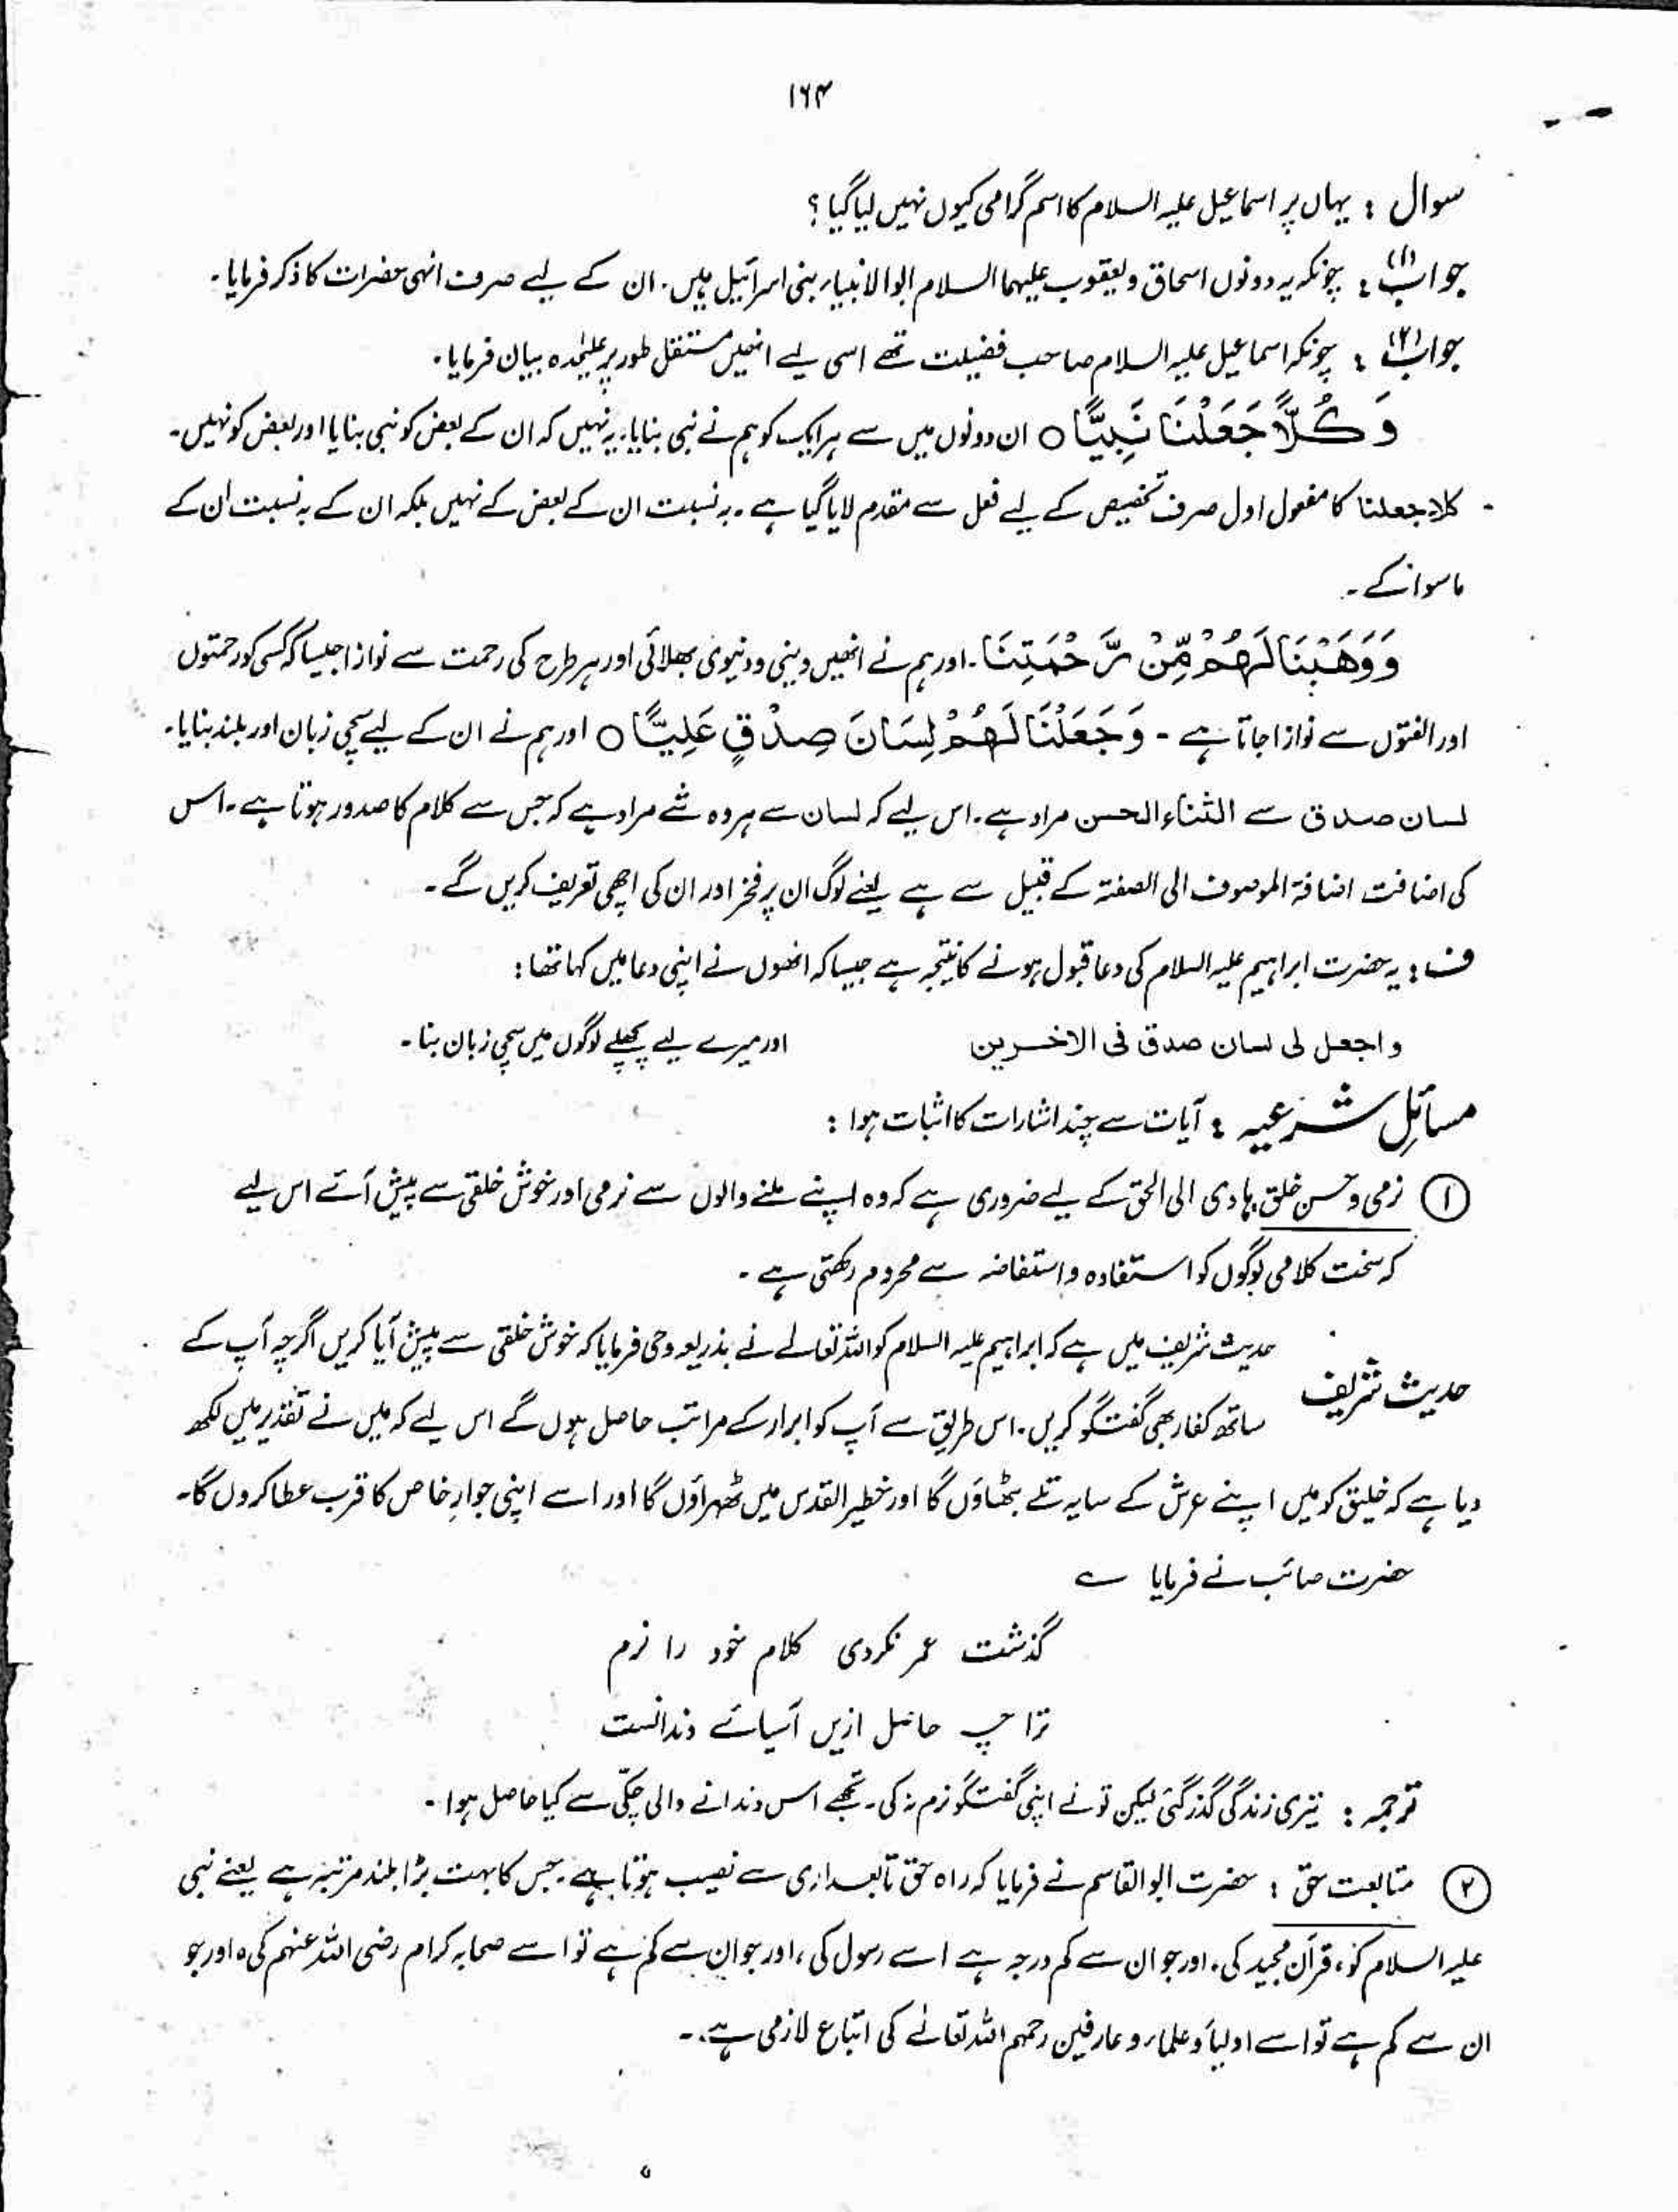 ۱۶۴
سوال : یہاں پر اسماعیل علیہ السلام کا اسم گرامی کیوں نہیں لیا گیا ؟
جواب (۱) : چونکہ یہ دونوں اسحاق و یعقوب علیہما السلام ابو الانبیاء بنی اسرائیل ہیں۔ ان کے لیے صرف انہی حضرات کا ذکر فرمایا۔
جواب (۲) : چونکہ اسماعیل علیہ السلام صاحب فضیلت تھے اسی لیے انھیں مستقل طور پر علیٰحدہ بیان فرمایا۔
وَ كُلًّا جَعَلْنَا نَبِيًّا ○ ان دونوں میں سے ہر ایک کو ہم نے نبی بنایا۔ یہ نہیں کہ ان کے بعض کو نبی بنایا اور بعض کو نہیں۔
کلا جعلنا کا مفعول اول صرف تخصیص کے لیے فعل سے مقدم لایا گیا ہے۔ بہ نسبت ان کے بعض کے نہیں بلکہ ان کے بہ نسبت ان کے
ماسوا کے۔
وَوَهَبْنَا لَهُمْ مِّنْ رَّحْمَتِنَا۔ اور ہم نے انھیں دینی و دنیوی بھلائی اور ہر طرح کی رحمت سے نوازا جیسا کہ کسی کو رحمتوں
اور الفتوں سے نوازا جاتا ہے - وَجَعَلْنَا لَهُمْ لِسَانَ صِدْقٍ عَلِيًّا ○ اور ہم نے ان کے لیے سچی زبان اور بلند بنایا۔
لسان صدق سے الثناء الحسن مراد ہے۔ اس لیے کہ لسان سے ہر وہ شے مراد ہے کہ جس سے کلام کا صدور ہوتا ہے۔ اس
کی اضافت اضافۃ الموصوف الی الصفتہ کے قبیل سے ہے یعنے لوگ ان پر فخر اور ان کی اچھی تعریف کریں گے۔
ف : یہ حضرت ابراہیم علیہ السلام کی دعا قبول ہونے کا نتیجہ ہے جیسا کہ انھوں نے اپنی دعا میں کہا تھا :
و اجعل لی لسان صدق فی الاخرین اور میرے لیے پچھلے لوگوں میں سچی زبان بنا۔
مسائل شرعیہ : آیات سے چند اشارات کا اثبات ہوا :
① نرمی و حسن خلق ہادی الی الحق کے لیے ضروری ہے کہ وہ اپنے ملنے والوں سے نرمی اور خوش خلقی سے پیش آئے اس لیے
کہ سخت کلامی لوگوں کو استفادہ و استفاضہ سے محروم رکھتی ہے۔
حدیث شریف حدیث شریف میں ہے کہ ابراہیم علیہ السلام کو اللہ تعالے نے بذریعہ وحی فرمایا کہ خوش خلقی سے پیش آیا کریں اگرچہ آپ کے
ساتھ کفار بھی گفتگو کریں۔ اس طریق سے آپ کو ابرار کے مراتب حاصل ہوں گے اس لیے کہ میں نے تقدیر میں لکھ
دیا ہے کہ خلیق کو میں اپنے عرش کے سایہ تلے بٹھاؤں گا اور خطیر القدس میں ٹھہراؤں گا اور اسے اپنی جوارِ خاص کا قرب عطا کروں گا۔
حضرت صائب نے فرمایا ؎
گذشت عمر نکردی کلام خود را نرم
ترا چہ حاصل ازیں آسیائے دندانست
ترجمہ : تیری زندگی گذر گئی لیکن تو نے اپنی گفتگو نرم نہ کی۔ تجھے اس دندانے والی چکی سے کیا حاصل ہوا۔
② متابعت حق : حضرت ابو القاسم نے فرمایا کہ راہ حق تابعداری سے نصیب ہوتا ہے۔ جس کا بہت بڑا بلند مرتبہ ہے یعنے نبی
علیہ السلام کو، قرآن مجید کی، اور جو ان سے کم درجہ ہے اسے رسول کی، اور جو ان سے کم ہے تو اسے صحابہ کرام رضی اللہ عنہم کی، اور جو
ان سے کم ہے تو اسے اولیاء و علماء و عارفین رحمہم اللہ تعالےٰ کی اتباع لازمی ہے۔